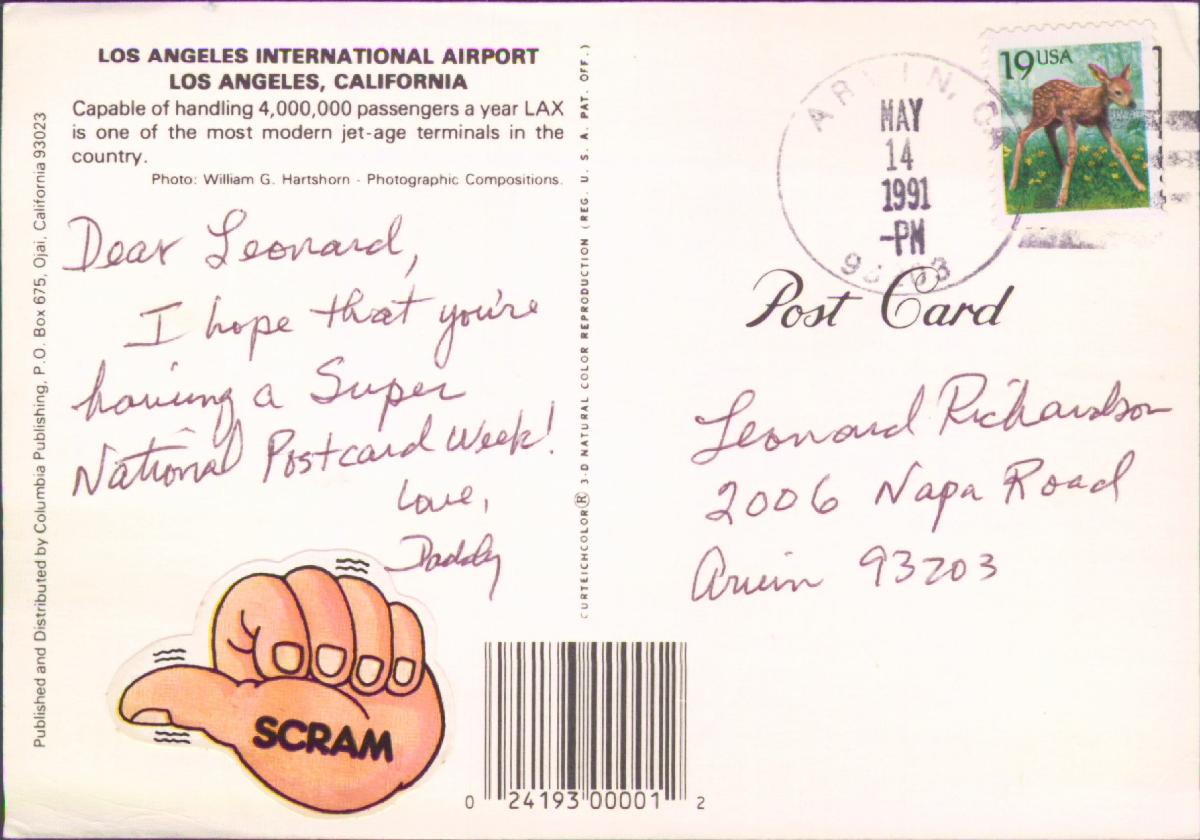 LOS ANGELES INTERNATIONAL AIRPORT
LOS ANGELES, CALIFORNIA
Capable of handling 4,000,000 passengers a year LAX
is one of the most modern jet-age terminals in the
country.
Photo: William G. Hartshorn - Photographic Compositions.
Published and Distributed by Columbia Publishing, P.O. Box 675, Ojai, California 93023
Dear Leonard,
I hope that you're
having a Super
National Postcard Week!
Love,
Daddy
SCRAM
CURTEICHCOLOR® 3-D NATURAL COLOR REPRODUCTION (REG. U. S. A. PAT. OFF.)
0 24193 00001 2
ARVIN, CA
MAY
14
1991
-PM
19 USA
Post Card
Leonard Richardson
2006 Napa Road
Arvin 93203